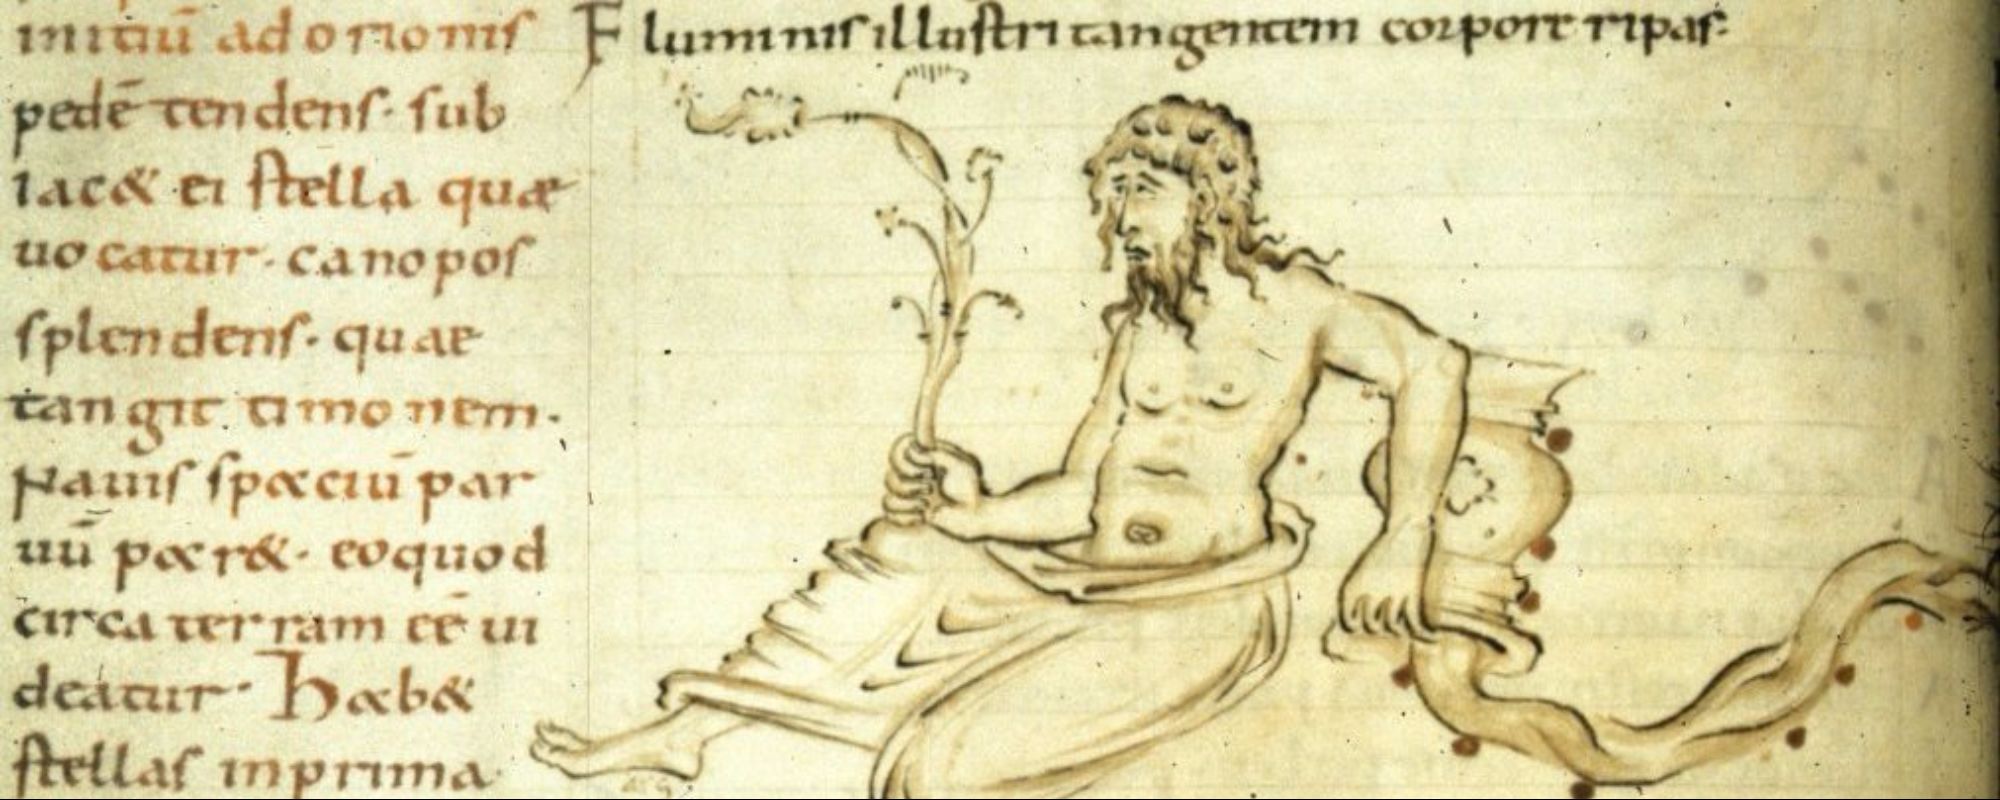 initiū ad orionis
pedē tendens· sub
iac& ei stella quæ
uocatur· canopos
splendens· quae
tangit timonem·
Nauis spaciū par
uū paer&· eoquod
circa terram eē ui
deatur· Hab&
stellas inprima
Fluminis illustri tangentem corpore ripas·